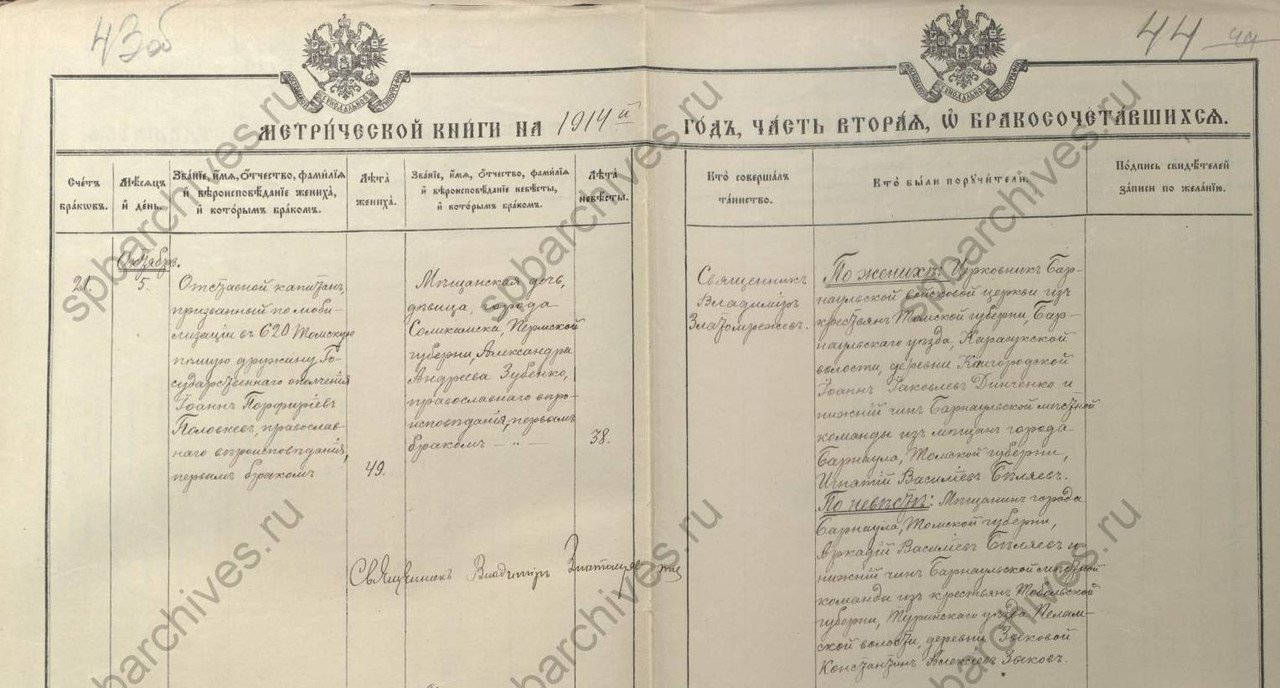 43об
44
МЕТРИ́ЧЕСКОЙ КНИ́ГИ НА 1914й ГО́ДЪ, ЧА́СТЬ ВТОРА́Я, Ѡ҆ БРАКОСОЧЕТА́ВШИХСЯ.
Сче́тъ бра́кѡвъ.
Мѣ́сяцъ и҆ де́нь.
Зва́нїе, и҆́мя, ѻ҆́тчество, фами́лїя
и҆ вѣроисповѣ́данїе жениха̀,
и҆ кото́рымъ бра́комъ.
Лѣ́та жениха̀.
Зва́нїе, и҆́мя, ѻ҆́тчество, фами́лїя
и҆ вѣроисповѣ́данїе невѣ́сты,
и҆ кото́рымъ бра́комъ.
Лѣ́та невѣ́сты.
Кто̀ соверша́лъ
та́инство.
Кто̀ бы́ли поручи́тели.
По́дпись свидѣ́телей
за́писи по жела́нїю.
21.
Октябрь.
5.
Отставной капитанъ,
призванный по моби-
лизации въ 620 Томскую
пѣшую дружину Го-
сударственнаго ополченія
Іоаннъ Порфиріевъ
Половневъ, православ-
наго вѣроисповѣданія,
первымъ бракомъ
49.
Мѣщанская дочь,
дѣвица, города
Соликамска, Пермской
губерніи, Александра
Андреева Зубенко,
православнаго вѣро-
исповѣданія, первымъ
бракомъ — „ —
38.
Священникъ
Владиміръ
Златомрежевъ.
По женихѣ: Церковникъ Бар-
наульской войсковой церкви изъ
крестьянъ Томской губерніи, Бар-
наульскаго уѣзда, Карасукской
волости, деревни
Іоаннъ Іаковлевъ Динченко и
нижній чинъ Барнаульской мѣстной
команды изъ мѣщанъ города
Барнаула, Томской губерніи,
Игнатій Василіевъ Бѣляевъ.
По невѣстѣ: Мѣщанинъ города
Барнаула, Томской губерніи,
Аркадій Василіевъ Бѣляевъ и
нижній чинъ Барнаульской мѣстной
команды изъ крестьянъ Тобольской
губерніи, Туринскаго уѣзда Пелым-
ской волости, деревни Зыковой
Константинъ Алексѣевъ Зыковъ.
Священникъ Владиміръ
spbarchives.ru
spbarchives.ru
spbarchives.ru
spbarchives.ru
spbarchives.ru
spbarchives.ru